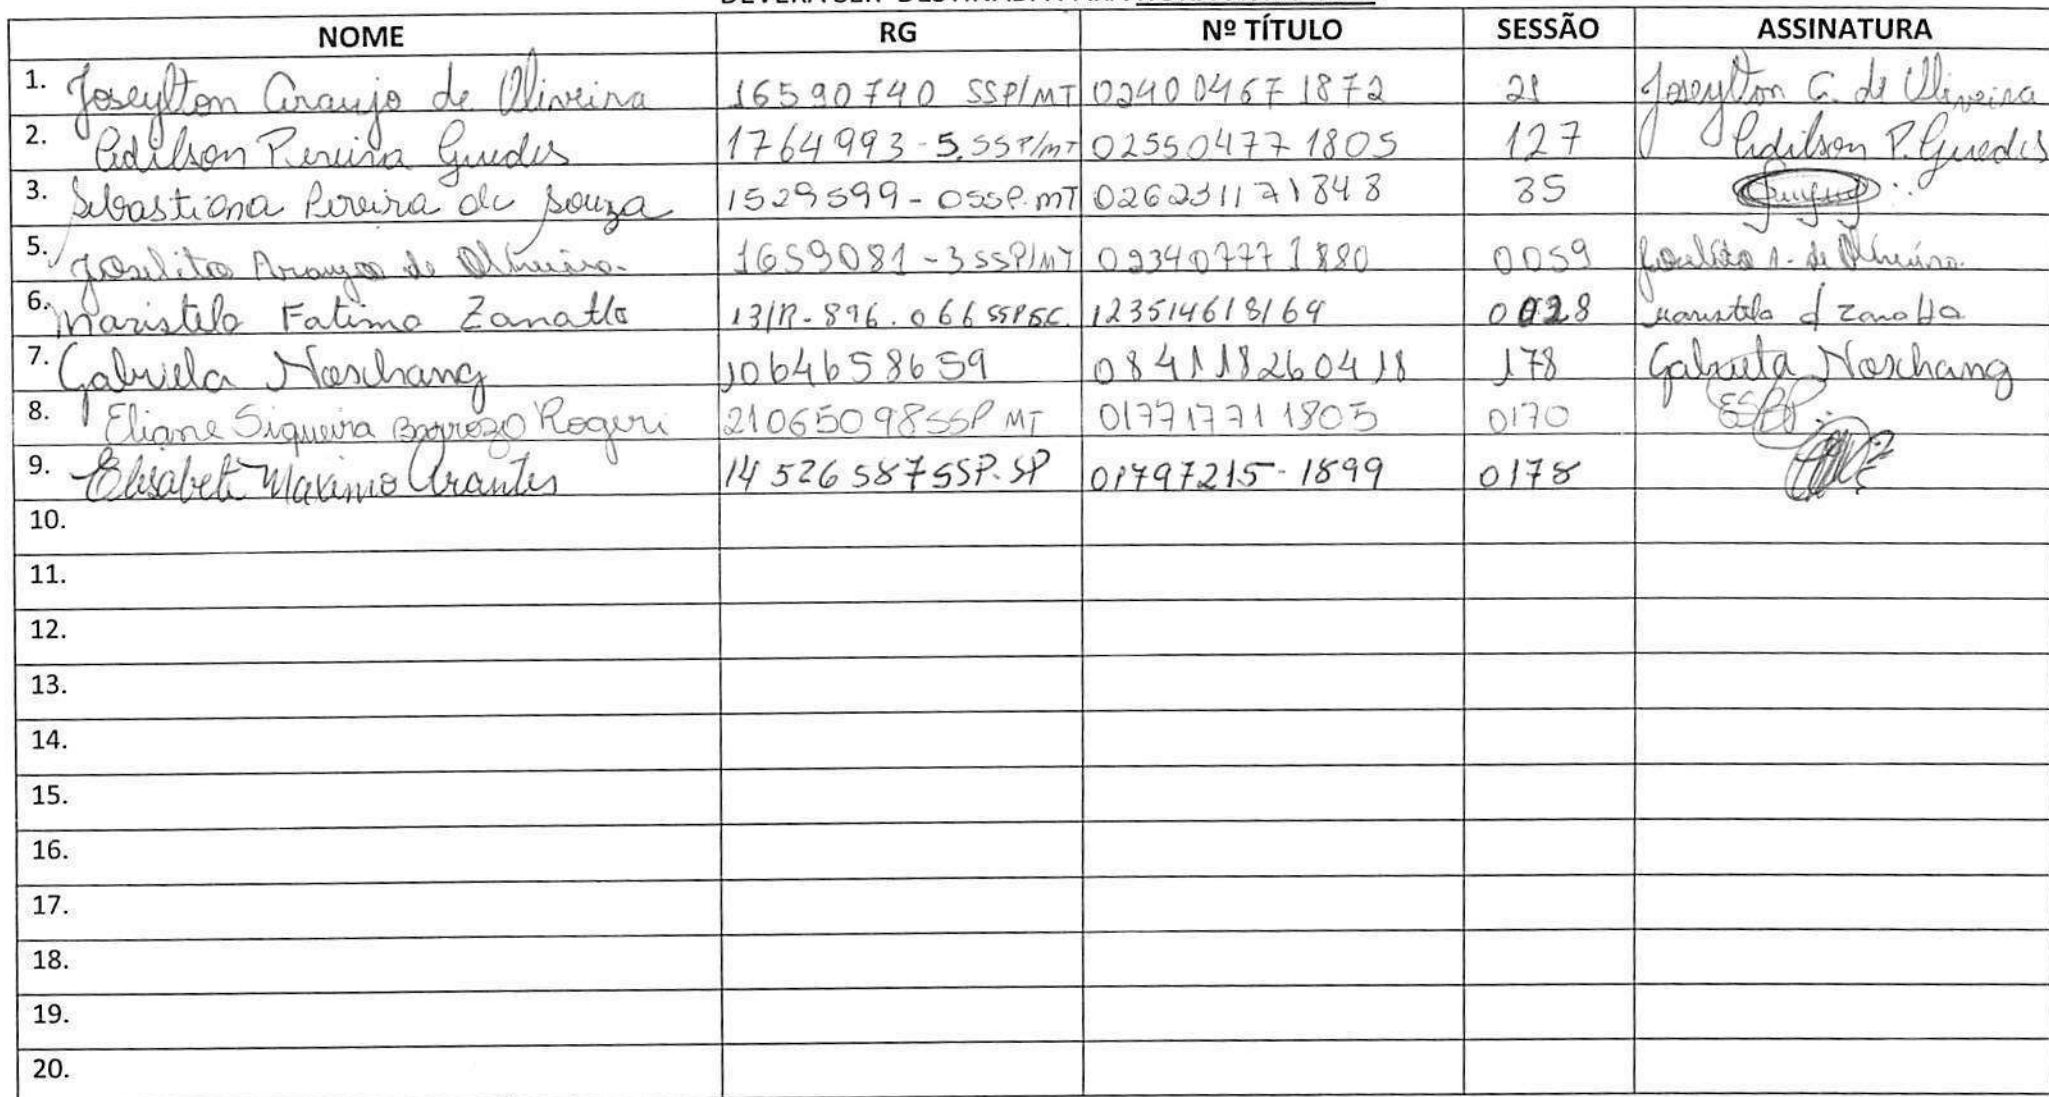 NOME RG Nº TÍTULO SESSÃO ASSINATURA
1. Joseylton Araujo de Oliveira 16590740 SSP/MT 024004671872 21 Joseylton A. de Oliveira
2. Edilson Pereira Guedes 1764993-5.SSP/MT 025504771805 127 Edilson P. Guedes
3. Sebastiana Pereira de Souza 1529599-0SSP.MT 026231171848 35
5. Joselito Araujo de Oliveira 1659081-3SSP/MT 023407771880 0059 Joselito A. de Oliveira
6. Maristela Fatima Zanatto 13/R-896.066 SSPSC 123514618/64 0028 Maristela d Zanatta
7. Gabriela Noschang 1064658659 084118260418 178 Gabriela Noschang
8. Eliane Siqueira Barrozo Rogeri 21065098SSP MT 017717711805 0170
9. Elisabete Maximo Arantes 14526587SSP.SP 01797215-1899 0178
10.
11.
12.
13.
14.
15.
16.
17.
18.
19.
20.